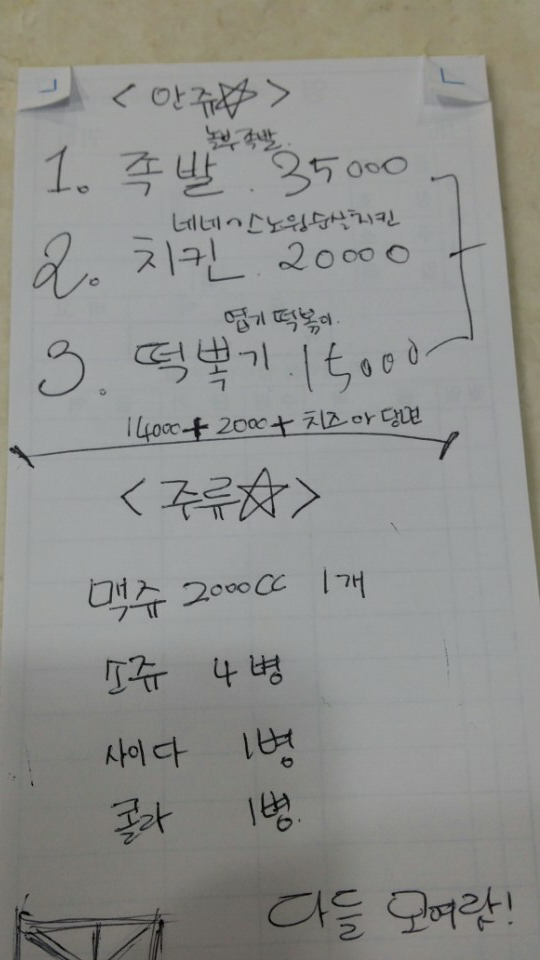 < 안쥬☆ >
놀부족발.
1. 족발. 35000
네네 스노윙순살치킨
2. 치킨. 20000
엽기 떡볶이.
3. 떡뽁기. 15000
14000+2000+ 치즈 당면
< 주류☆ >
맥쥬 2000CC 1개
쏘쥬 4병
사이다 1병
콜라 1병.
다들 모여람!